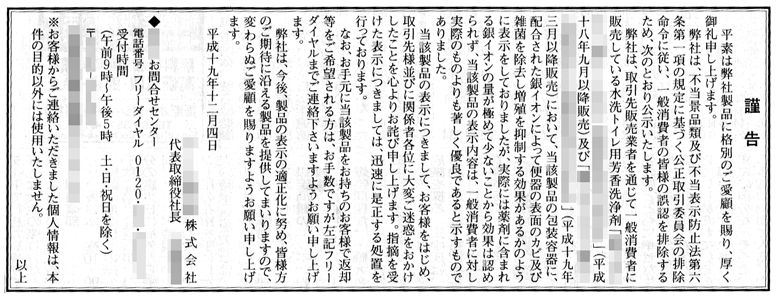 謹告
平素は弊社製品に格別のご愛顧を賜り、厚く
御礼申し上げます。
弊社は、不当景品類及び不当表示防止法第六
条第一項の規定に基づく公正取引委員会の排除
命令に従い、一般消費者の皆様の誤認を排除する
ため、次のとおり公示いたします。
弊社は、取引先販売業者を通じて一般消費者に
販売している水洗トイレ用芳香洗浄剤「
」(平成
十八年九月以降販売)及び「
」(平成十九年
三月以降販売)において、当該製品の包装容器に、
配合された銀イオンによって便器の表面のカビ及び
雑菌を除去し増殖を抑制する効果があるかのよう
に表示をしておりましたが、実際には薬剤に含まれ
る銀イオンの量が極めて少ないことから効果は認め
られず、当該製品の表示内容は、一般消費者に対し
実際のものよりも著しく優良であると示すもので
ありました。
当該製品の表示につきまして、お客様をはじめ、
取引先様並びに関係者各位に大変ご迷惑をおかけ
したことを心よりお詫び申し上げます。指摘を受
けた表示につきましては、迅速に是正する処置を
行っております。
なお、お手元に当該製品をお持ちのお客様で返却
等をご希望される方は、お手数ですが左記フリー
ダイヤルまでご連絡下さいますようお願い申し上げ
ます。
弊社は、今後、製品の表示の適正化に努め、皆様方
のご期待に沿える製品を提供してまいりますので、
変わらぬご愛顧を賜りますようお願い申し上げ
ます。
平成十九年十二月四日
株式会社
代表取締役社長
◆
お問合せセンター
電話番号 フリーダイヤル 0120-
受付時間
(午前9時～午後5時 土・日・祝日を除く)
〒
※お客様からご連絡いただきました個人情報は、本
件の目的以外には使用いたしません。
以上